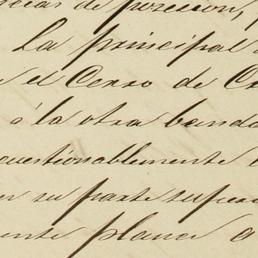 de posesion,
La principal
el Cerro de
á la otra banda
cuestionablemente
su parte super
ente plana